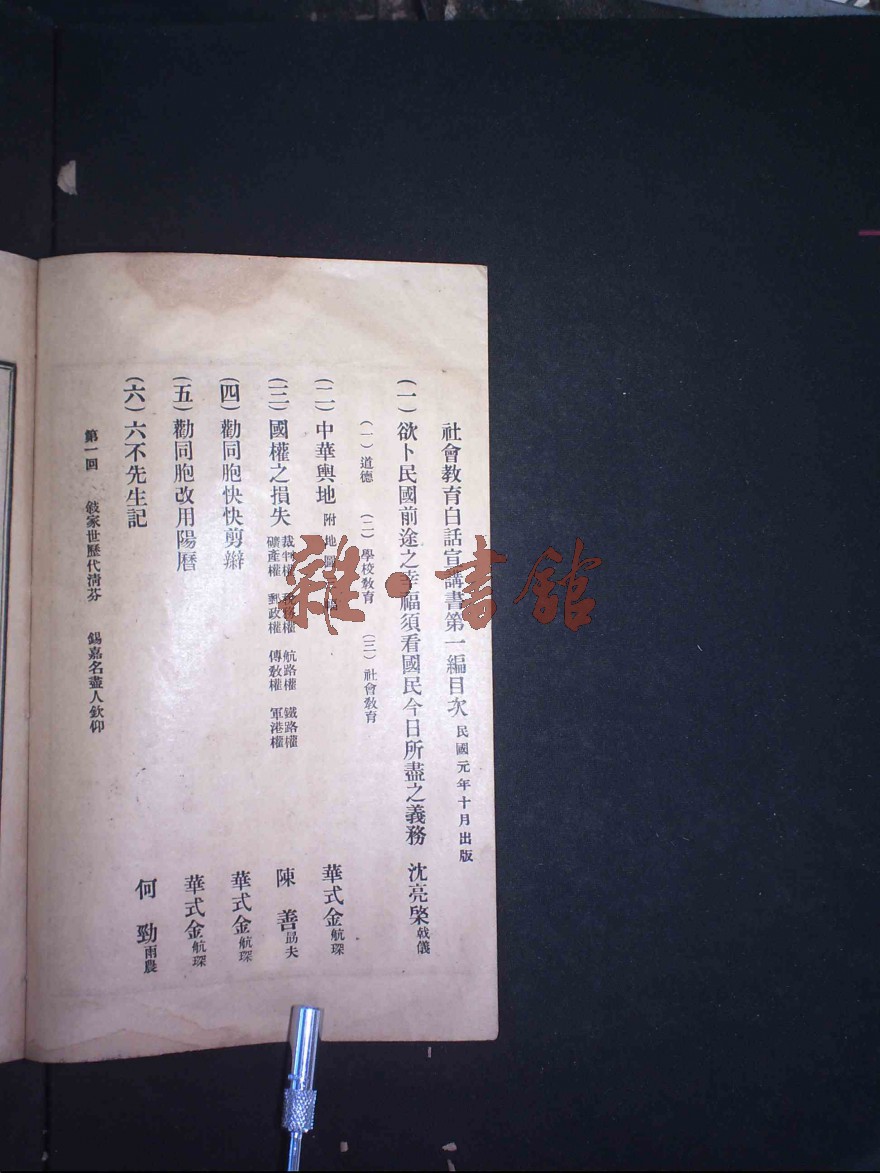 社會教育白話宣講書第一編目次 民國元年十月出版
(一) 欲卜民國前途之幸福須看國民今日所盡之義務 沈亮棨戟儀
(一) 道德 (二) 學校教育 (三) 社會教育
(二) 中華輿地 附地圖 華式金航琛
(三) 國權之損失 裁判權 稅務權 航路權 鐵路權 礦產權 郵政權 傳教權 軍港權 陳善勗夫
(四) 勸同胞快快剪辮 華式金航琛
(五) 勸同胞改用陽曆 華式金航琛
(六) 六不先生記 何勁雨農
第一回 敍家世歷代清芬 錫嘉名盡人欽仰
雜·書館